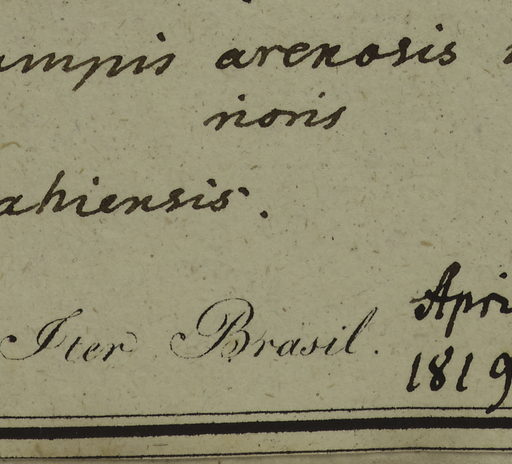 ampis arenosis
rioris
ahiensis.
Iter Brasil. Apri
1819